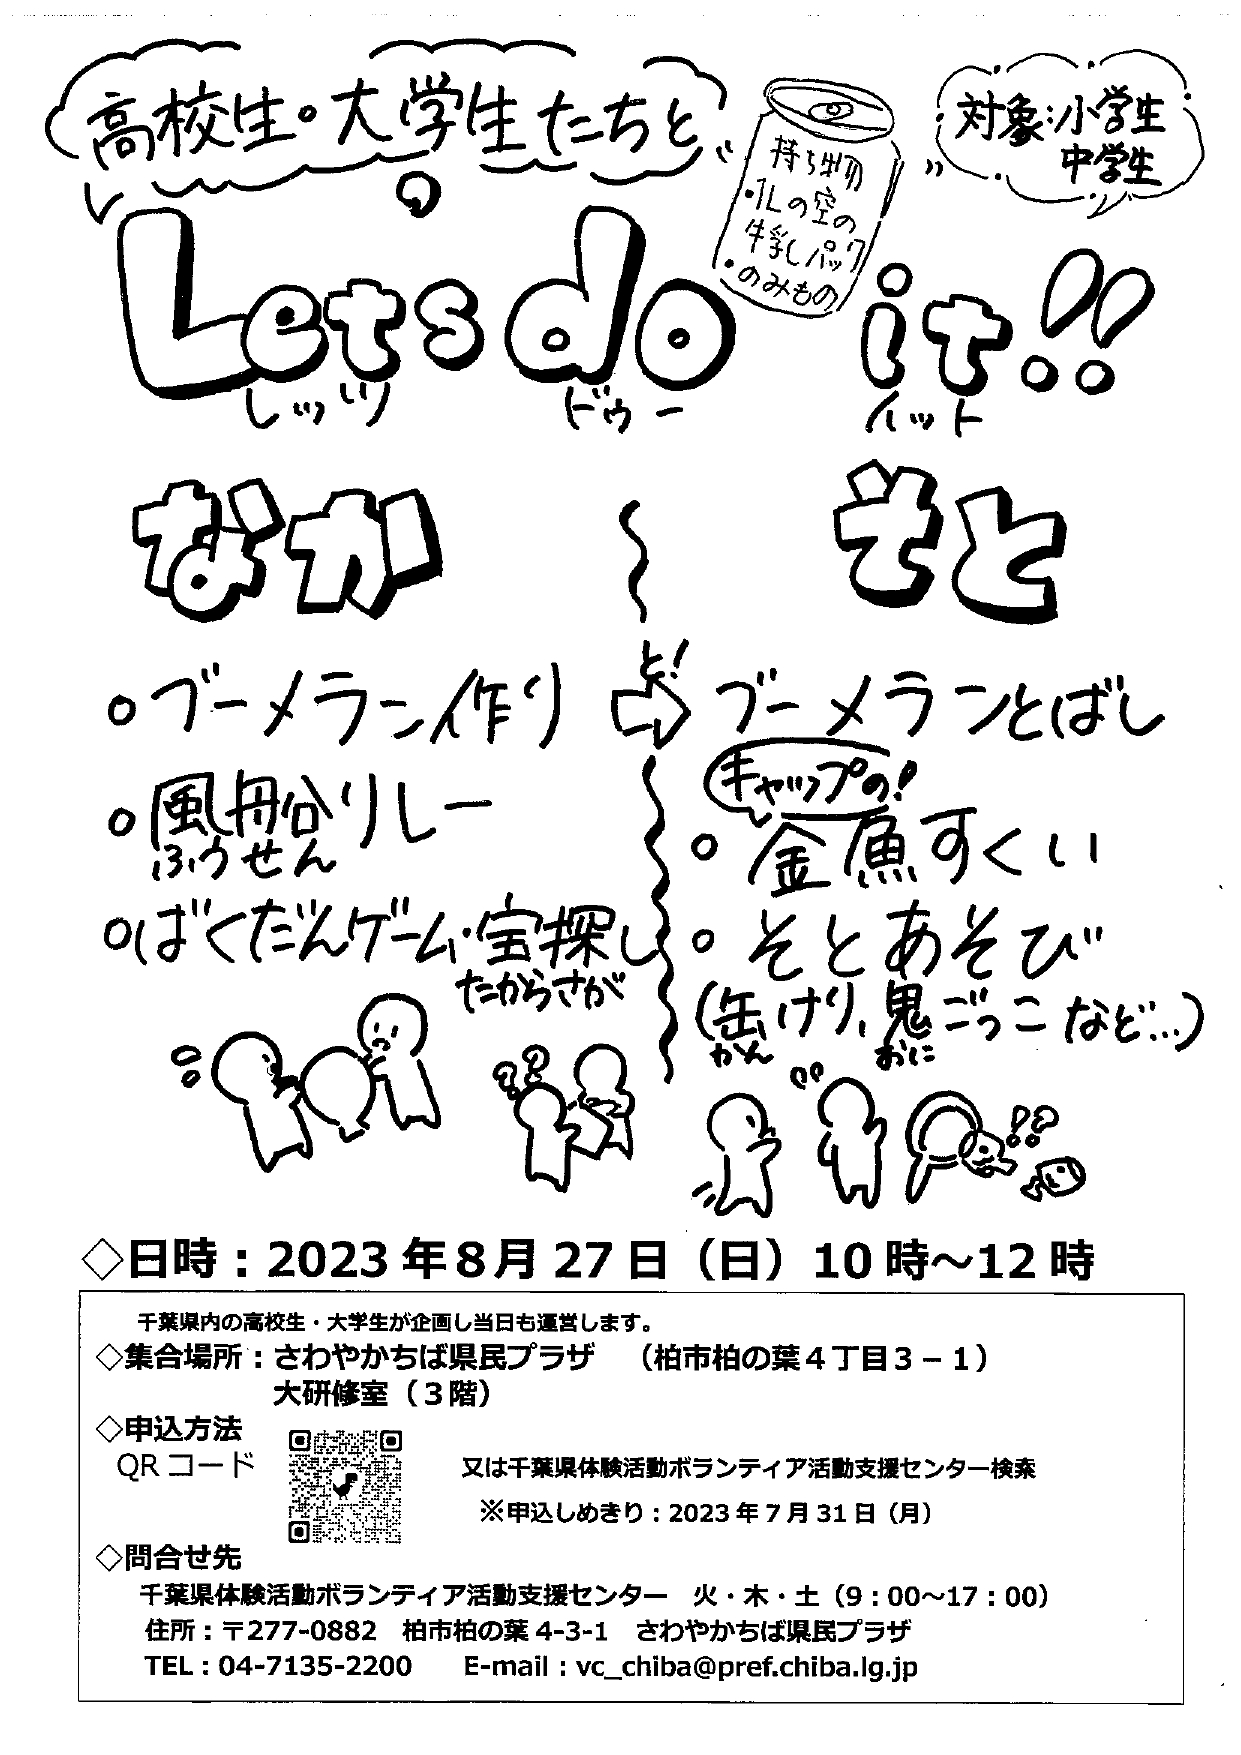 高校生。大学生たちと
対象:小学生
中学生
持ち物
・1Lの空の
牛乳パック
・のみもの
Lets do it!!
レッツ ドゥー イット
なか 〜 そと
○ブーメラン作り と! ⇨ ブーメランとばし
○風船リレー
ふうせん
キャップの!
○金魚すくい
○ばくだんゲーム・宝探し
たからさが
○そとあそび
(缶けり、鬼ごっこなど…)
かん おに
?? !!?
◇日時：2023年8月27日（日）10時～12時
千葉県内の高校生・大学生が企画し当日も運営します。
◇集合場所：さわやかちば県民プラザ （柏市柏の葉４丁目３－１）
大研修室（３階）
◇申込方法
QRコード
又は千葉県体験活動ボランティア活動支援センター検索
※申込しめきり：2023年7月31日（月）
◇問合せ先
千葉県体験活動ボランティア活動支援センター 火・木・土（9：00～17：00）
住所：〒277-0882 柏市柏の葉4-3-1 さわやかちば県民プラザ
TEL：04-7135-2200 E-mail：vc_chiba@pref.chiba.lg.jp